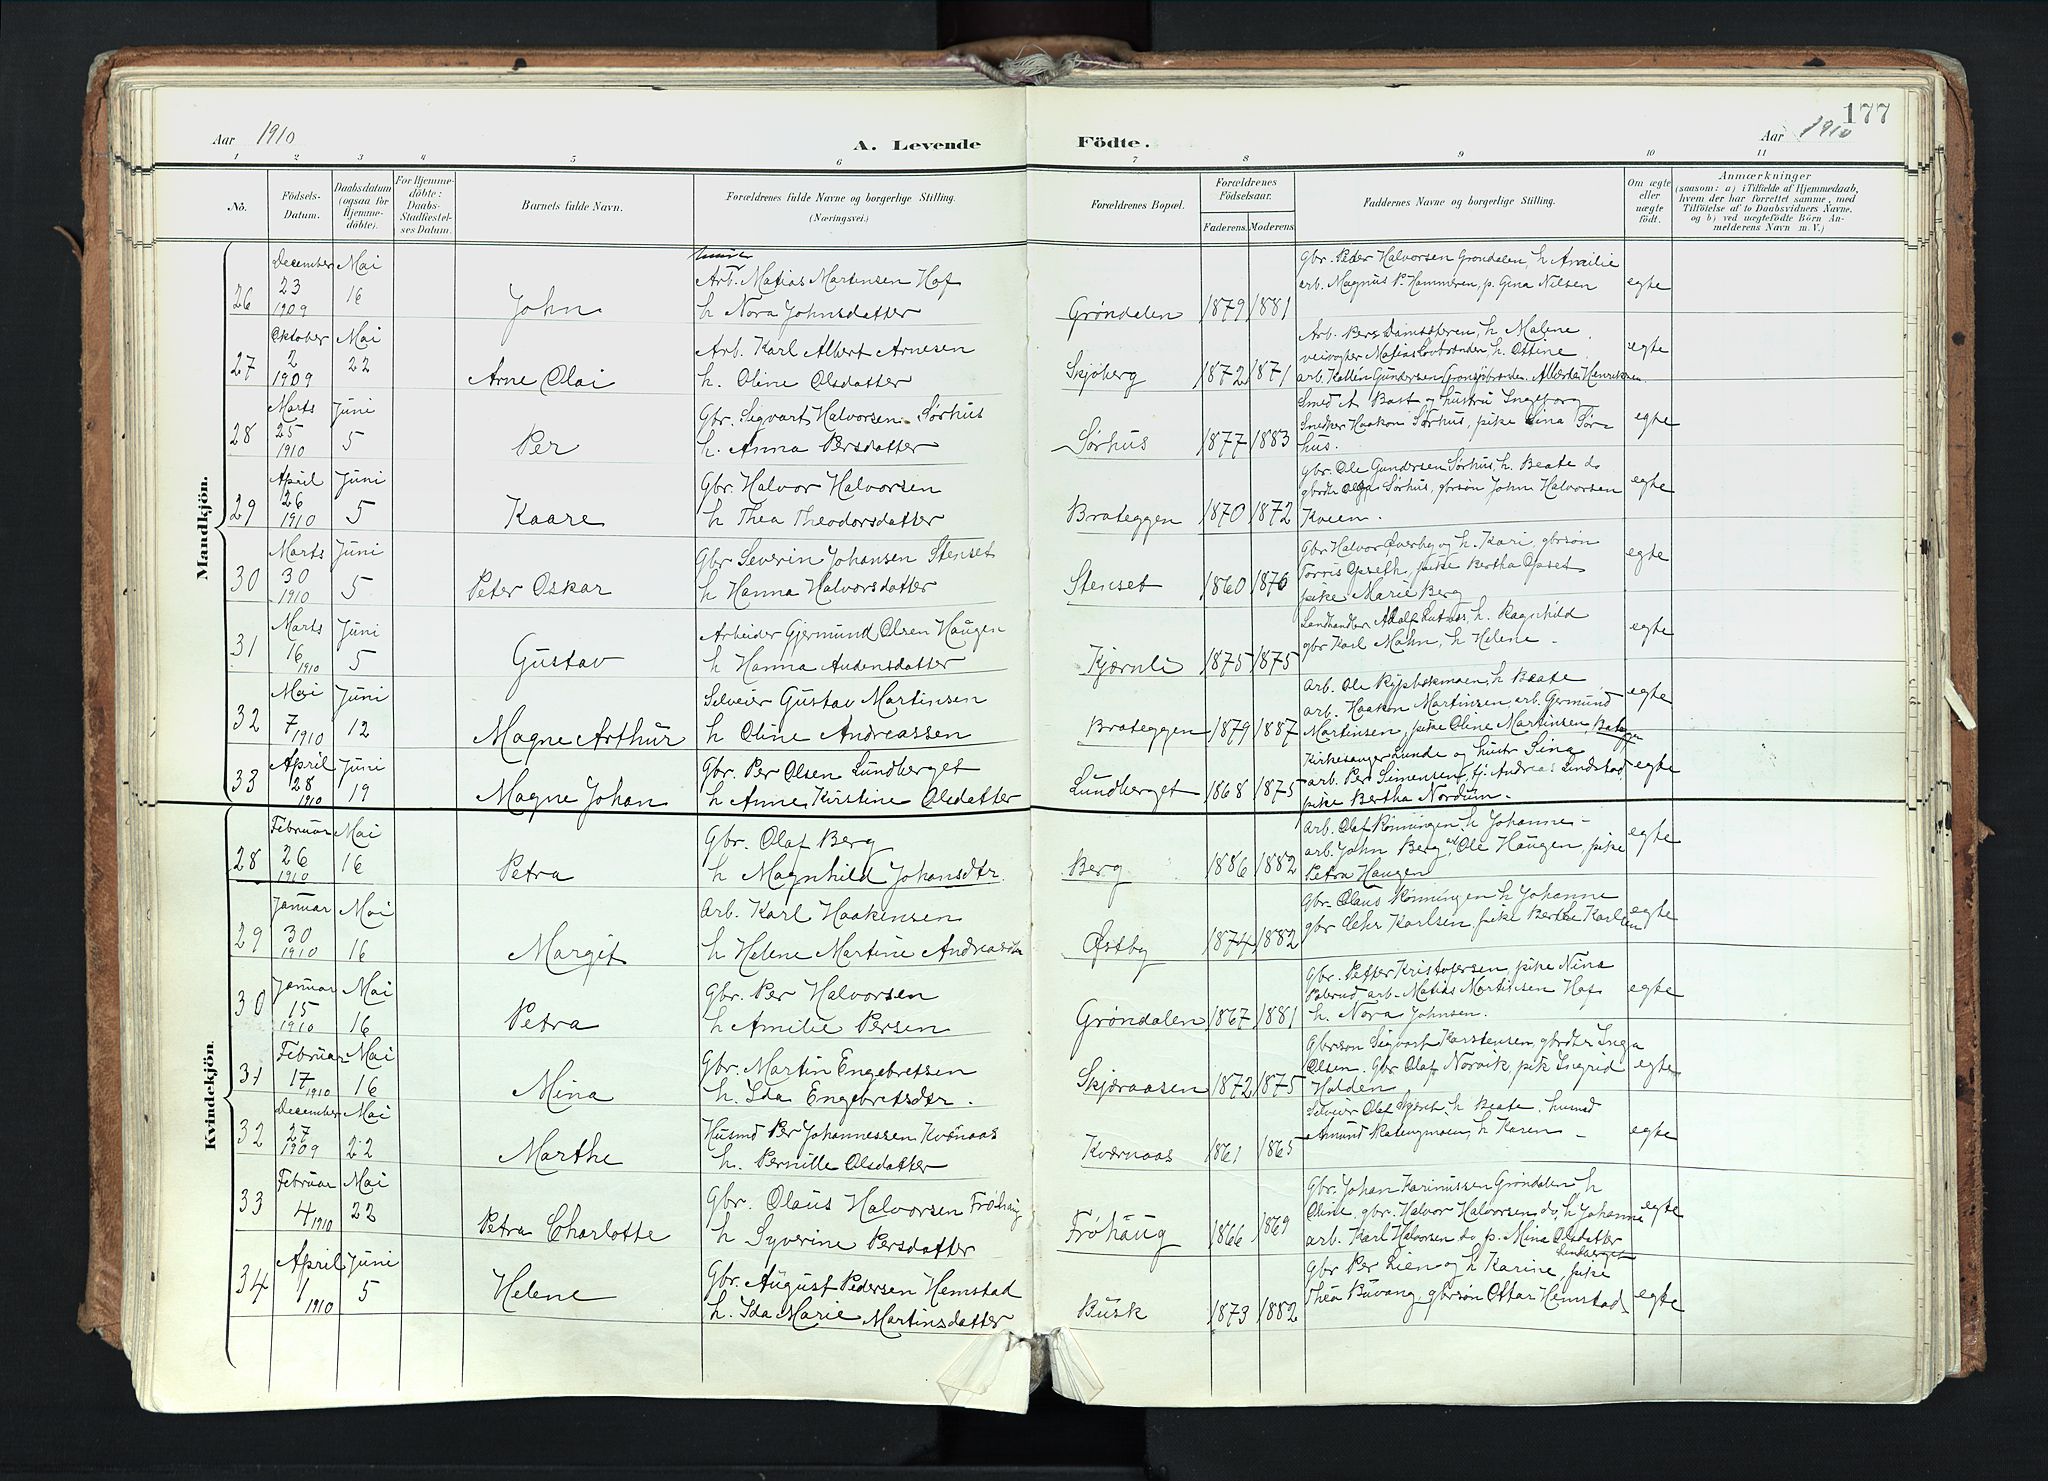 177
Aar 1910
A. Levende Födte.
Aar 1910
1 2 3 4 5 6 7 8 9 10 11
Nö.
Födsels-Datum.
Daabsdatum (ogsaa for Hjemme-döbte).
For Hjemme-döbte: Daabs-Stadfæstel-ses Datum.
Barnets fulde Navn.
Forældrenes fulde Navne og borgerlige Stilling. (Næringsvei.)
Forældrenes Bopæl.
Forældrenes Födselsaar.
Faderens. Moderens.
Faddernes Navne og borgerlige Stilling.
Om ægte eller uægte födt.
Anmærkninger
(saasom: a) i Tilfælde af Hjemmedaab, hvem der har forrettet samme, med Tilföielse af to Daabsvidners Navne, og b) ved uægtefödte Börn An-melderens Navn m. V.)
Mandkjön.
26 December 23 1909 Mai 16 John
Arb. Matias Martinsen Hof
h Nora Johnsdatter
Grøndalen 1879 1881
Gbr. Peder Halvorsen Grøndalen, h Amilie
arb. Magnus P. Hammeren, p. Gina Nilsen
egte
27 Oktober 2 1909 Mai 22 Arne Olai
Arb. Karl Albert Arnesen
h. Oline Olsdatter
Skjøberg 1872 1871
Arb. Per Damsæteren, h. Malene
veivogter Matias h. Ottine
arb. Gundersen
egte
28 Marts 25 1910 Juni 5 Per
Gbr. Sigvart Halvorsen Sørhus
h. Anna Persdatter
Sørhus 1877 1883
Smed A Bast og hustru Ingeborg
Snedker Haakon Sørhus, pike Lina Sør-
hus.
egte
29 April 26 1910 Juni 5 Kaare
Gbr. Halvor Halvorsen
h Thea Theodorsdatter
Brateggen 1870 1872
gbr. Ole Gundersen Sørhus, h. Beate do
gbrdtr Olga Sørhus, gbrsøn John Halvorsen
Kveen.
egte
30 Marts 30 1910 Juni 5 Peter Oskar
Gbr Severin Johansen Stenset
h Hanna Halvorsdatter
Stenset 1860 1876
Gbr Halvor Øverby og h. Kari, gbrsøn
Torris Opseth, pike Bertha Opset
pike Marie Berg
egte
31 Marts 16 1910 Juni 5 Gustav
Arbeider Gjermund Olsen Haugen
h Hanna Audensdatter
Kjærnli 1875 1875
Landhandler Adolf h. Ragnhild
gbr Karl Mohn, h Helene -
egte
32 Mai 7 1910 Juni 12 Magne Arthur
Selveier Gustav Martinsen
h Oline Andreassen
Brateggen 1879 1887
arb. Ole h Beate
arb. Haakon Martinsen, arb. Germund
Martinsen, pike Oline Martinsen,
egte
33 April 28 1910 Juni 19 Magne Johan
Gbr. Per Olsen Lundberget
h Anne Kirstine Olsdatter
Lundberget 1868 1875
Kirkesanger Lunde og hustr Sina
arb. Per Simensen, tj. Andreas Lindstad
pike Bertha Nordum.
egte
Kvindekjön.
28 Februar 26 1910 Mai 16 Petra
Gbr. Olaf Berg
h Magnhild Johansdtr.
Berg 1886 1882
arb. Olaf Rønningen h Johanne -
arb. John Berg, Ole Haugen, pike
Petra Haugen
egte
29 Januar 30 1910 Mai 16 Margit
Arb. Karl Haakensen
h Helene Martine
Østby 1874 1882
Gbr. Olaus Rønningen h Johanne
gbr Karlsen, pike Berthe Karlsen
egte
30 Januar 15 1910 Mai 16 Petra
Gbr. Per Halvorsen
h Amilie Persen
Grøndalen 1867 1881
Gbr. Petter Kristofersen, pike Nina
arb. Matias Martinsen Hof
h. Nora Johnsen.
egte
31 Februar 17 1910 Mai 16 Mina
Gbr. Martin Engebretsen
h. Ida Engebretsdtr.
Skjæraasen 1872 1875
Gbrsøn Sigvart Karstensen, gbrdtr Inga
Olsen. Gbr Olaf Norvik, pik Ingrid
Halden
egte
32 December 27 1909 Mai 22 Marthe
Husmd Per Johannessen Kværnaas
h. Pernille Olsdatter
Kværnaas 1861 1865
Selveier Olaf h Beate, husmd
Amund h Karen -
egte
33 Februar 4 1910 Mai 22 Petra Charlotte
Gbr. Olaus Halvorsen Frøhaug
h Syverine Persdatter
Frøhaug 1866 1869
Gbr. Johan Karinussen Grøndalen h
Oline, gbr. Halvor Halvorsen do, h Johanne
arb. Karl Halvorsen do p. Mina Olsdatter
Lundberget
egte
34 April 1 1910 Juni 5 Helene
Gbr. August Pedersen Hemstad
h. Ida Marie Martinsdatter
Busk 1873 1882
Gbr Per Lien og h Karine, pike
Thea Buvang, gbrsøn Ottar Hemstad
egte